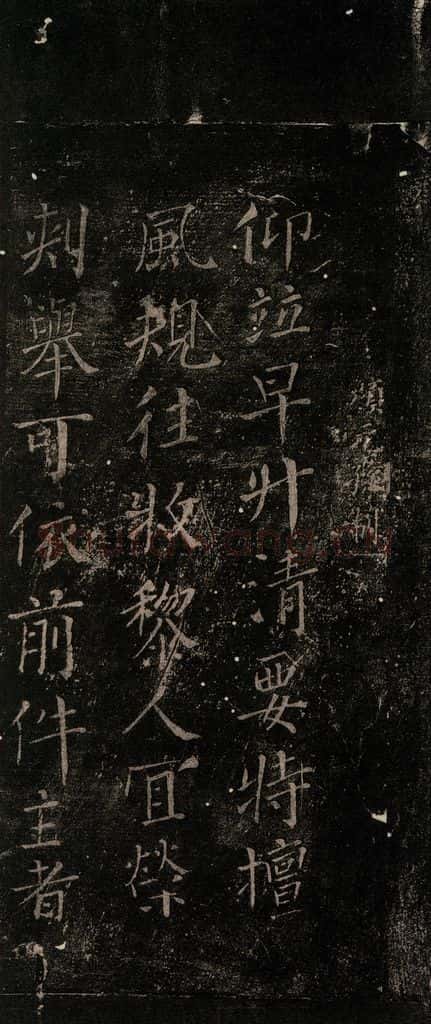 仰竝早升清要特檀
風規往牧黎人宜榮
刺舉可依前件主者